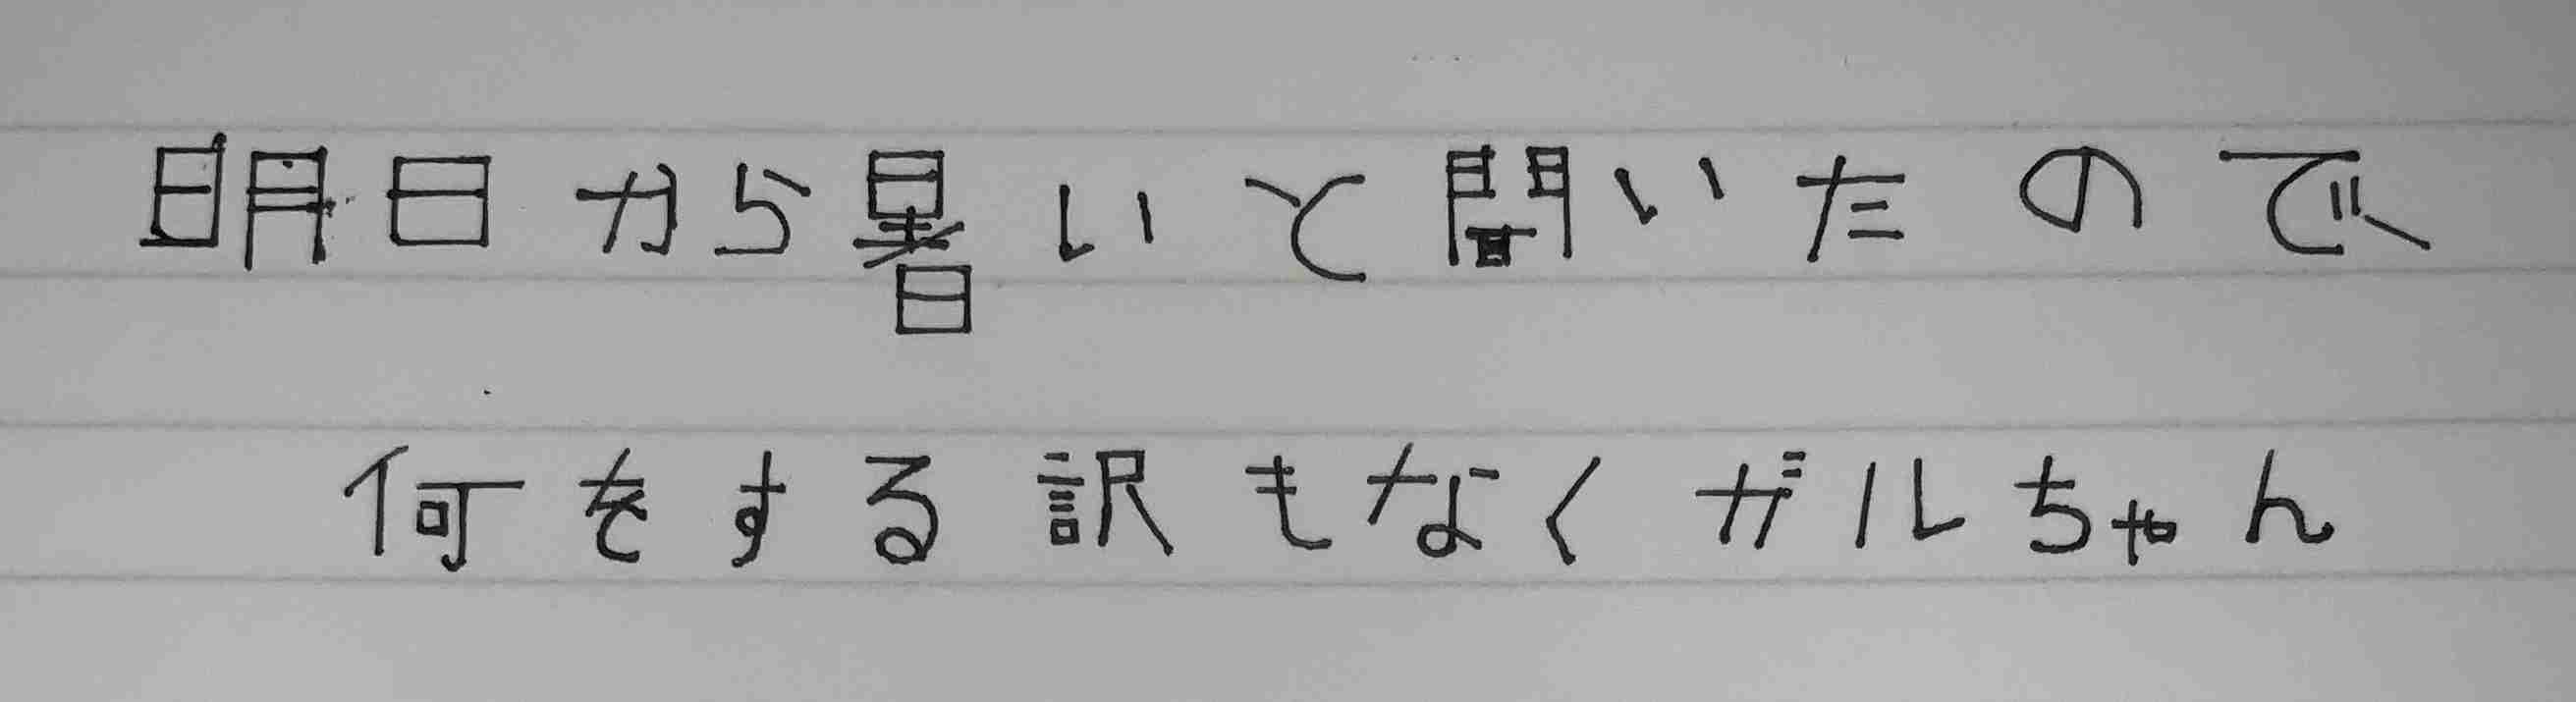 明日から暑いと聞いたので
何をする訳もなくガルちゃん